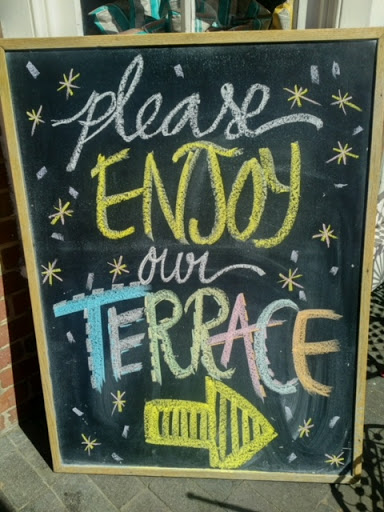 please
ENJOY
our
TERRACE